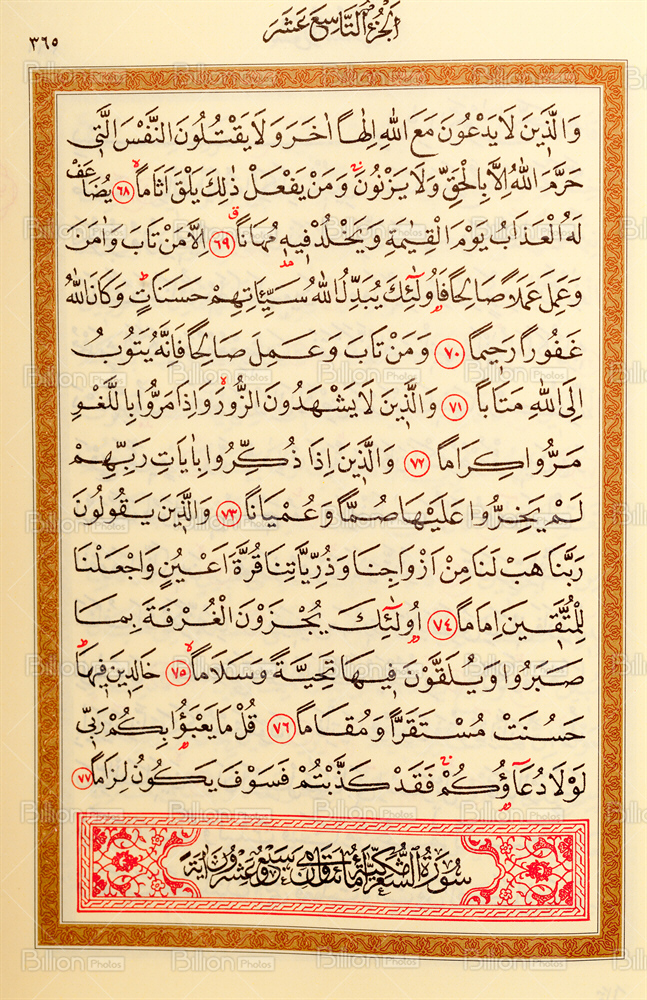 الجزء التاسع عشر
٣٦٥
وَالَّذِينَ لَا يَدْعُونَ مَعَ اللّٰهِ اِلٰهاً اٰخَرَ وَلَا يَقْتُلُونَ النَّفْسَ الَّتِي
حَرَّمَ اللّٰهُ اِلَّا بِالْحَقِّ وَلَا يَزْنُونَ وَمَنْ يَفْعَلْ ذٰلِكَ يَلْقَ اَثَاماً ٦٨ يُضَاعَفْ
لَهُ الْعَذَابُ يَوْمَ الْقِيٰمَةِ وَيَخْلُدْ فِيهِ مُهَاناً ٦٩ اِلَّا مَنْ تَابَ وَاٰمَنَ
وَعَمِلَ عَمَلاً صَالِحاً فَاُولٰٓئِكَ يُبَدِّلُ اللّٰهُ سَيِّـَٔاتِهِمْ حَسَنَاتٍ وَكَانَ اللّٰهُ
غَفُوراً رَحِيماً ٧٠ وَمَنْ تَابَ وَعَمِلَ صَالِحاً فَاِنَّهُ يَتُوبُ
اِلَى اللّٰهِ مَتَاباً ٧١ وَالَّذِينَ لَا يَشْهَدُونَ الزُّورَ وَاِذَا مَرُّوا بِاللَّغْوِ
مَرُّوا كِرَاماً ٧٢ وَالَّذِينَ اِذَا ذُكِّرُوا بِاٰيَاتِ رَبِّهِمْ
لَمْ يَخِرُّوا عَلَيْهَا صُمّاً وَعُمْيَاناً ٧٣ وَالَّذِينَ يَقُولُونَ
رَبَّنَا هَبْ لَنَا مِنْ اَزْوَاجِنَا وَذُرِّيَّاتِنَا قُرَّةَ اَعْيُنٍ وَاجْعَلْنَا
لِلْمُتَّقِينَ اِمَاماً ٧٤ اُولٰٓئِكَ يُجْزَوْنَ الْغُرْفَةَ بِمَا
صَبَرُوا وَيُلَقَّوْنَ فِيهَا تَحِيَّةً وَسَلَاماً ٧٥ خَالِدِينَ فِيهَا
حَسُنَتْ مُسْتَقَرّاً وَمُقَاماً ٧٦ قُلْ مَا يَعْبَؤُا بِكُمْ رَبِّي
لَوْلَا دُعَآؤُكُمْ فَقَدْ كَذَّبْتُمْ فَسَوْفَ يَكُونُ لِزَاماً ٧٧
سورة الشعراء مكية وهي مائتان وسبع وعشرون اية